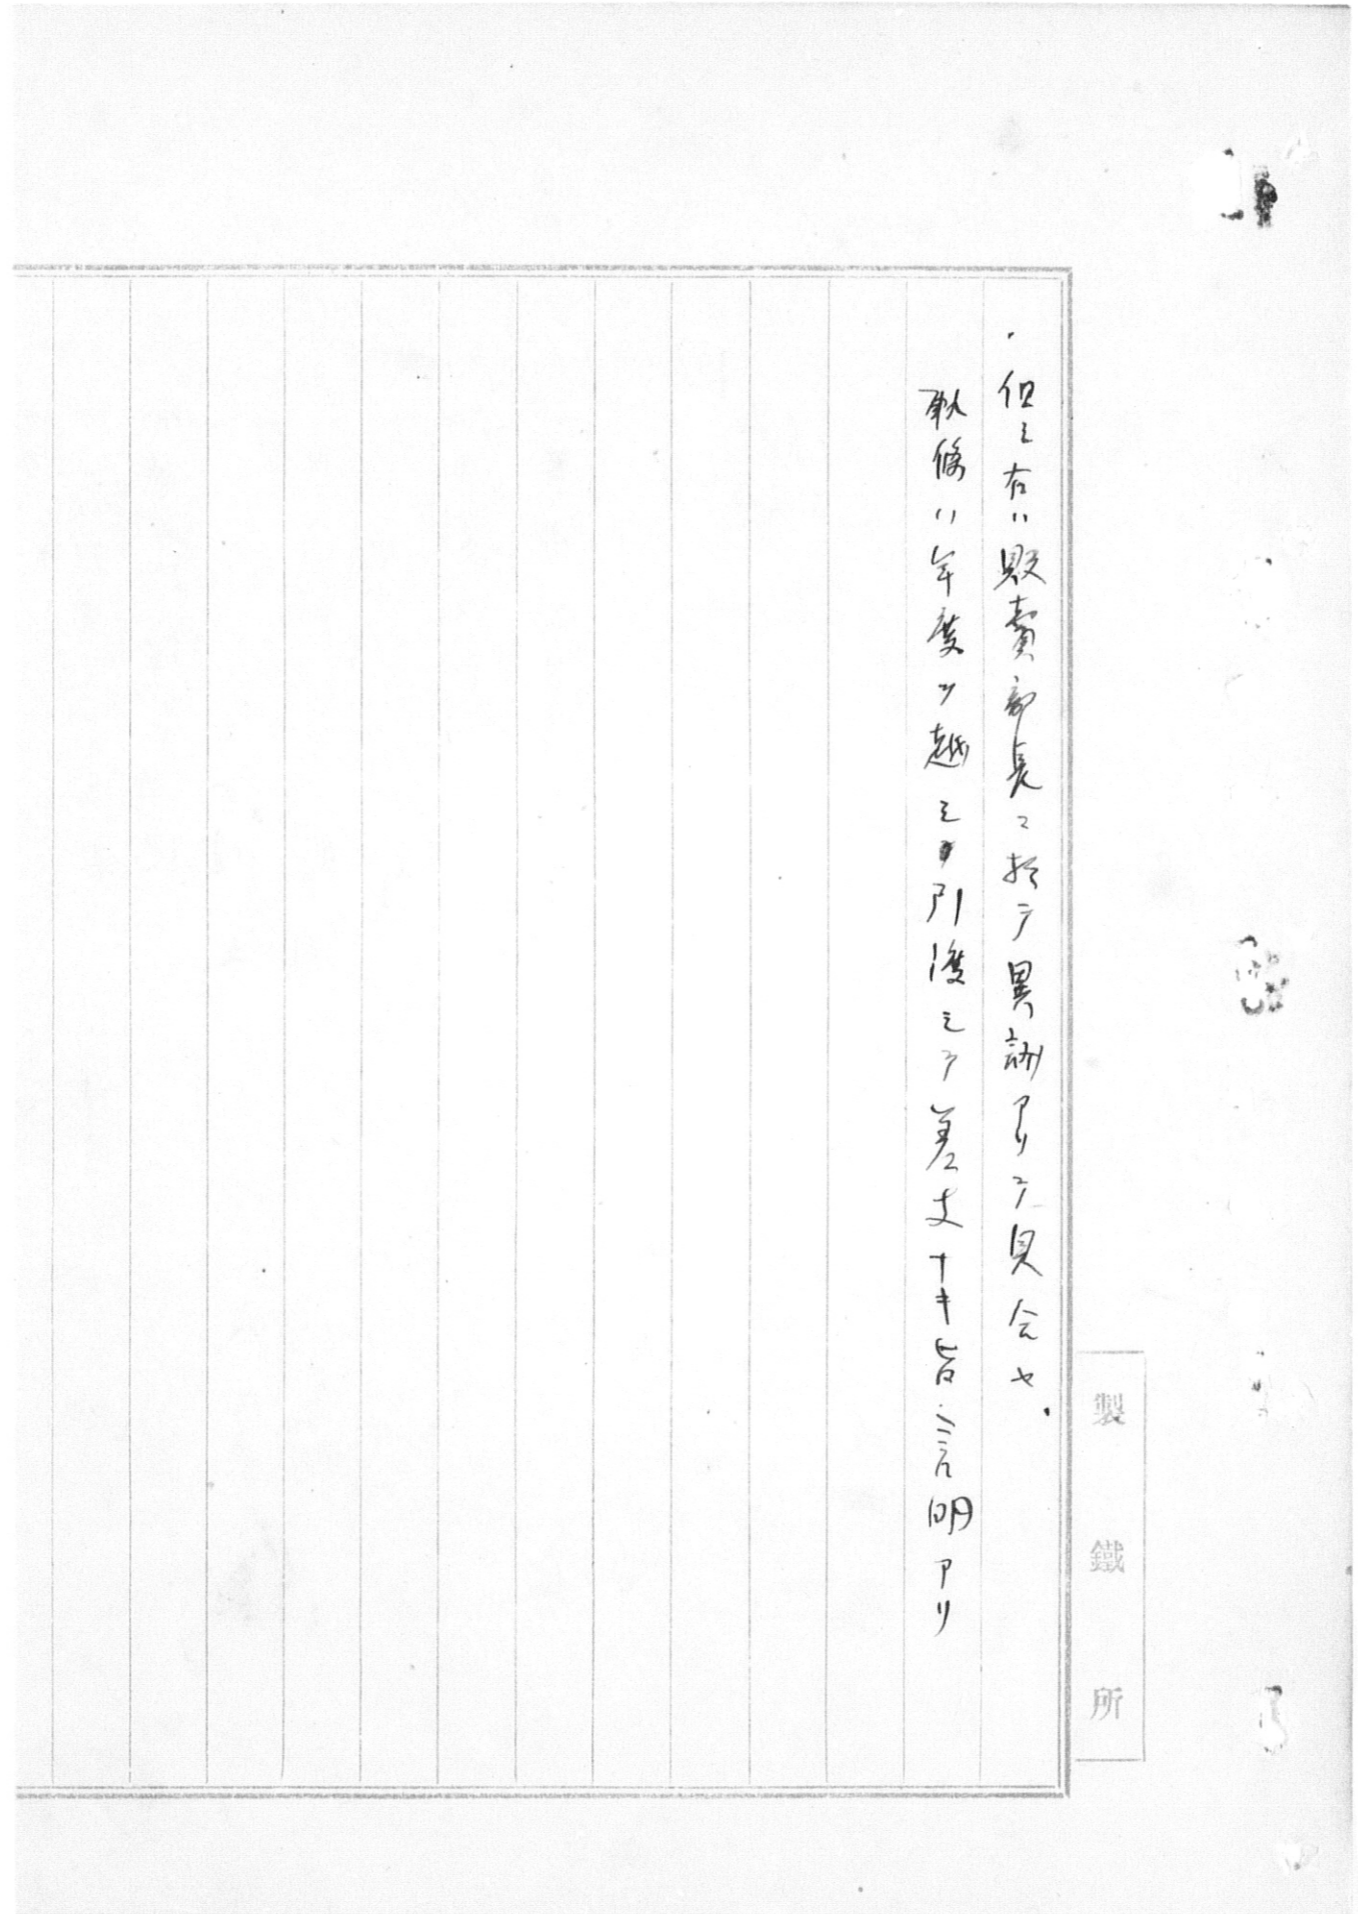 但シ右ハ販賣部長ニ於テ異論アリテ見合セ、
軌條ハ年度ヲ越シ引渡シテ差支ナキ旨言明アリ
製鐵所